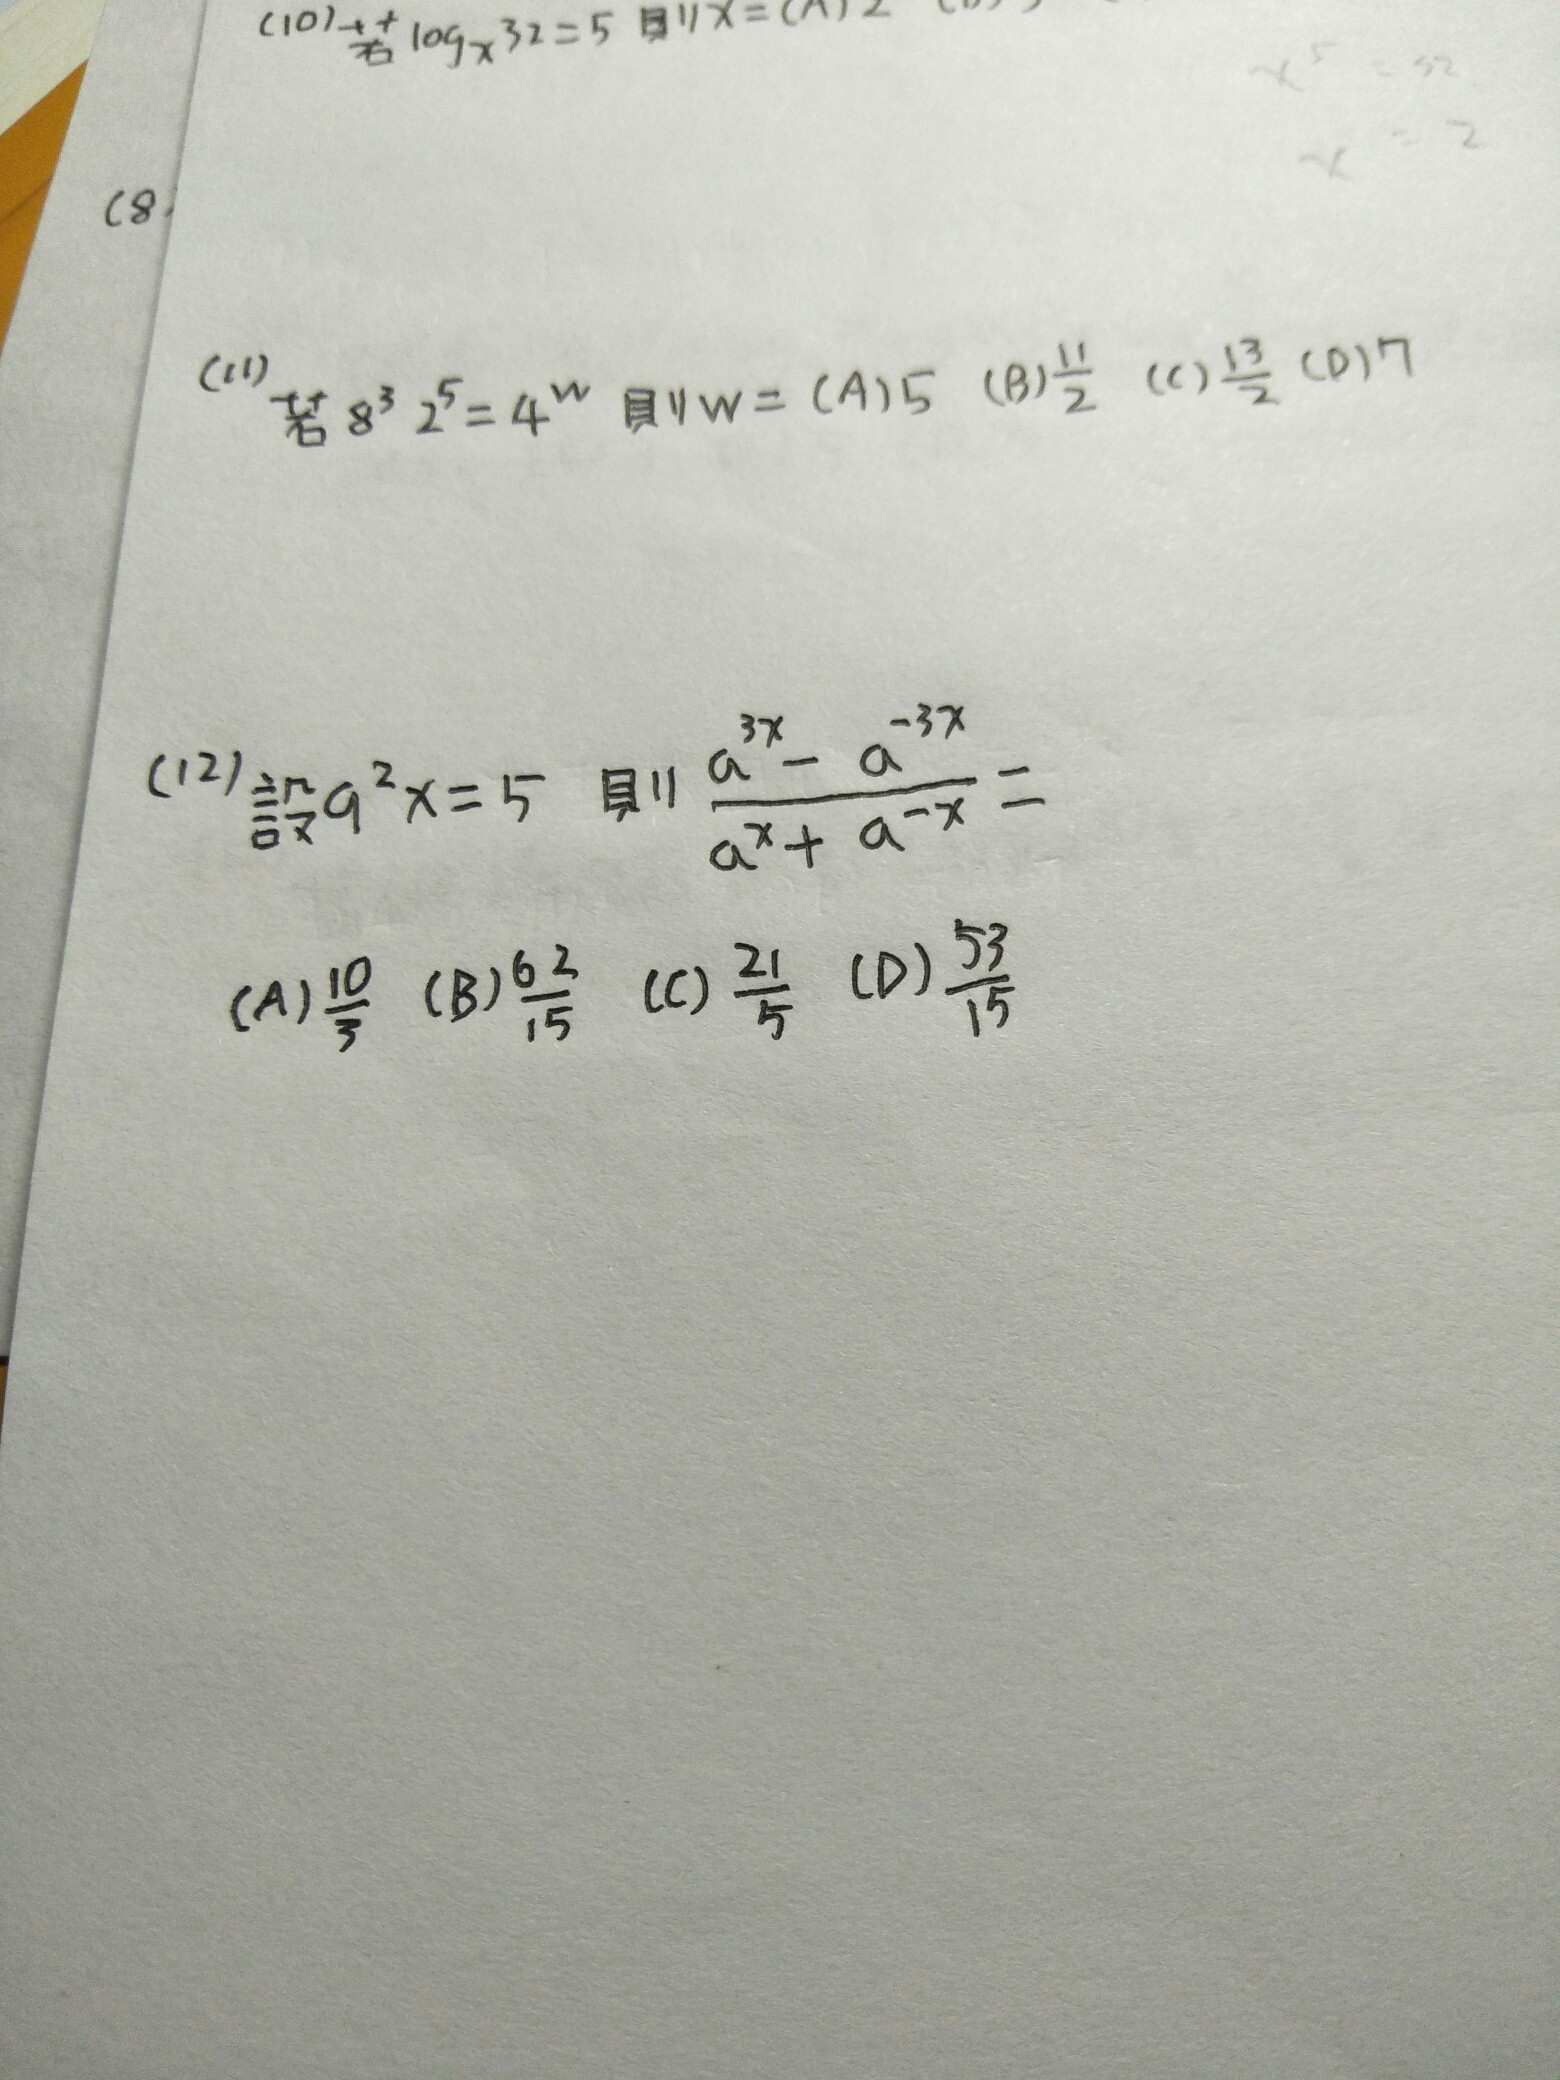 (10) 若 logₓ32=5 則x=(A)2
x⁵ = 32
x = 2
(8
(11) 若 8³ 2⁵=4ʷ 則w= (A)5 (B)11/2 (C)13/2 (D)7
(12) 設a²x=5 則 (a³ˣ - a⁻³ˣ)/(aˣ + a⁻ˣ) =
(A)10/3 (B)62/15 (C)21/5 (D)53/15